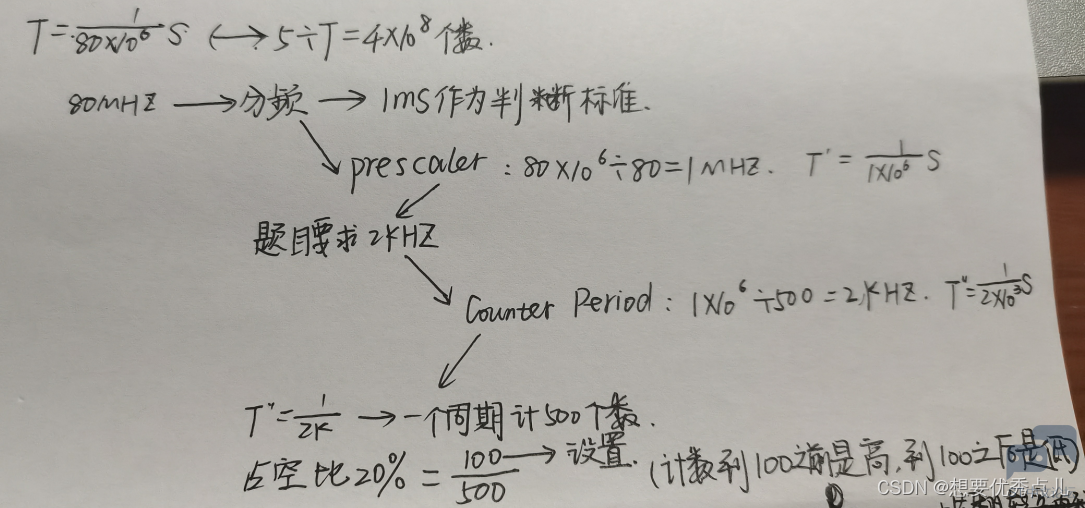 T=1/80×10⁶ S ⟷ 5÷T=4×10⁸个数.
80MHZ → 分频 → 1ms作为判断标准.
prescaler : 80×10⁶÷80=1MHZ. T'=1/1×10⁶ S
题目要求2KHZ
Counter Period : 1×10⁶÷500=2KHZ. T"=1/2×10³ S
T"=1/2K → 一个周期计500个数.
占空比20%=100/500 → 设置. (计数到100之前是高,到100之后是低)
CSDN @想要优秀点儿